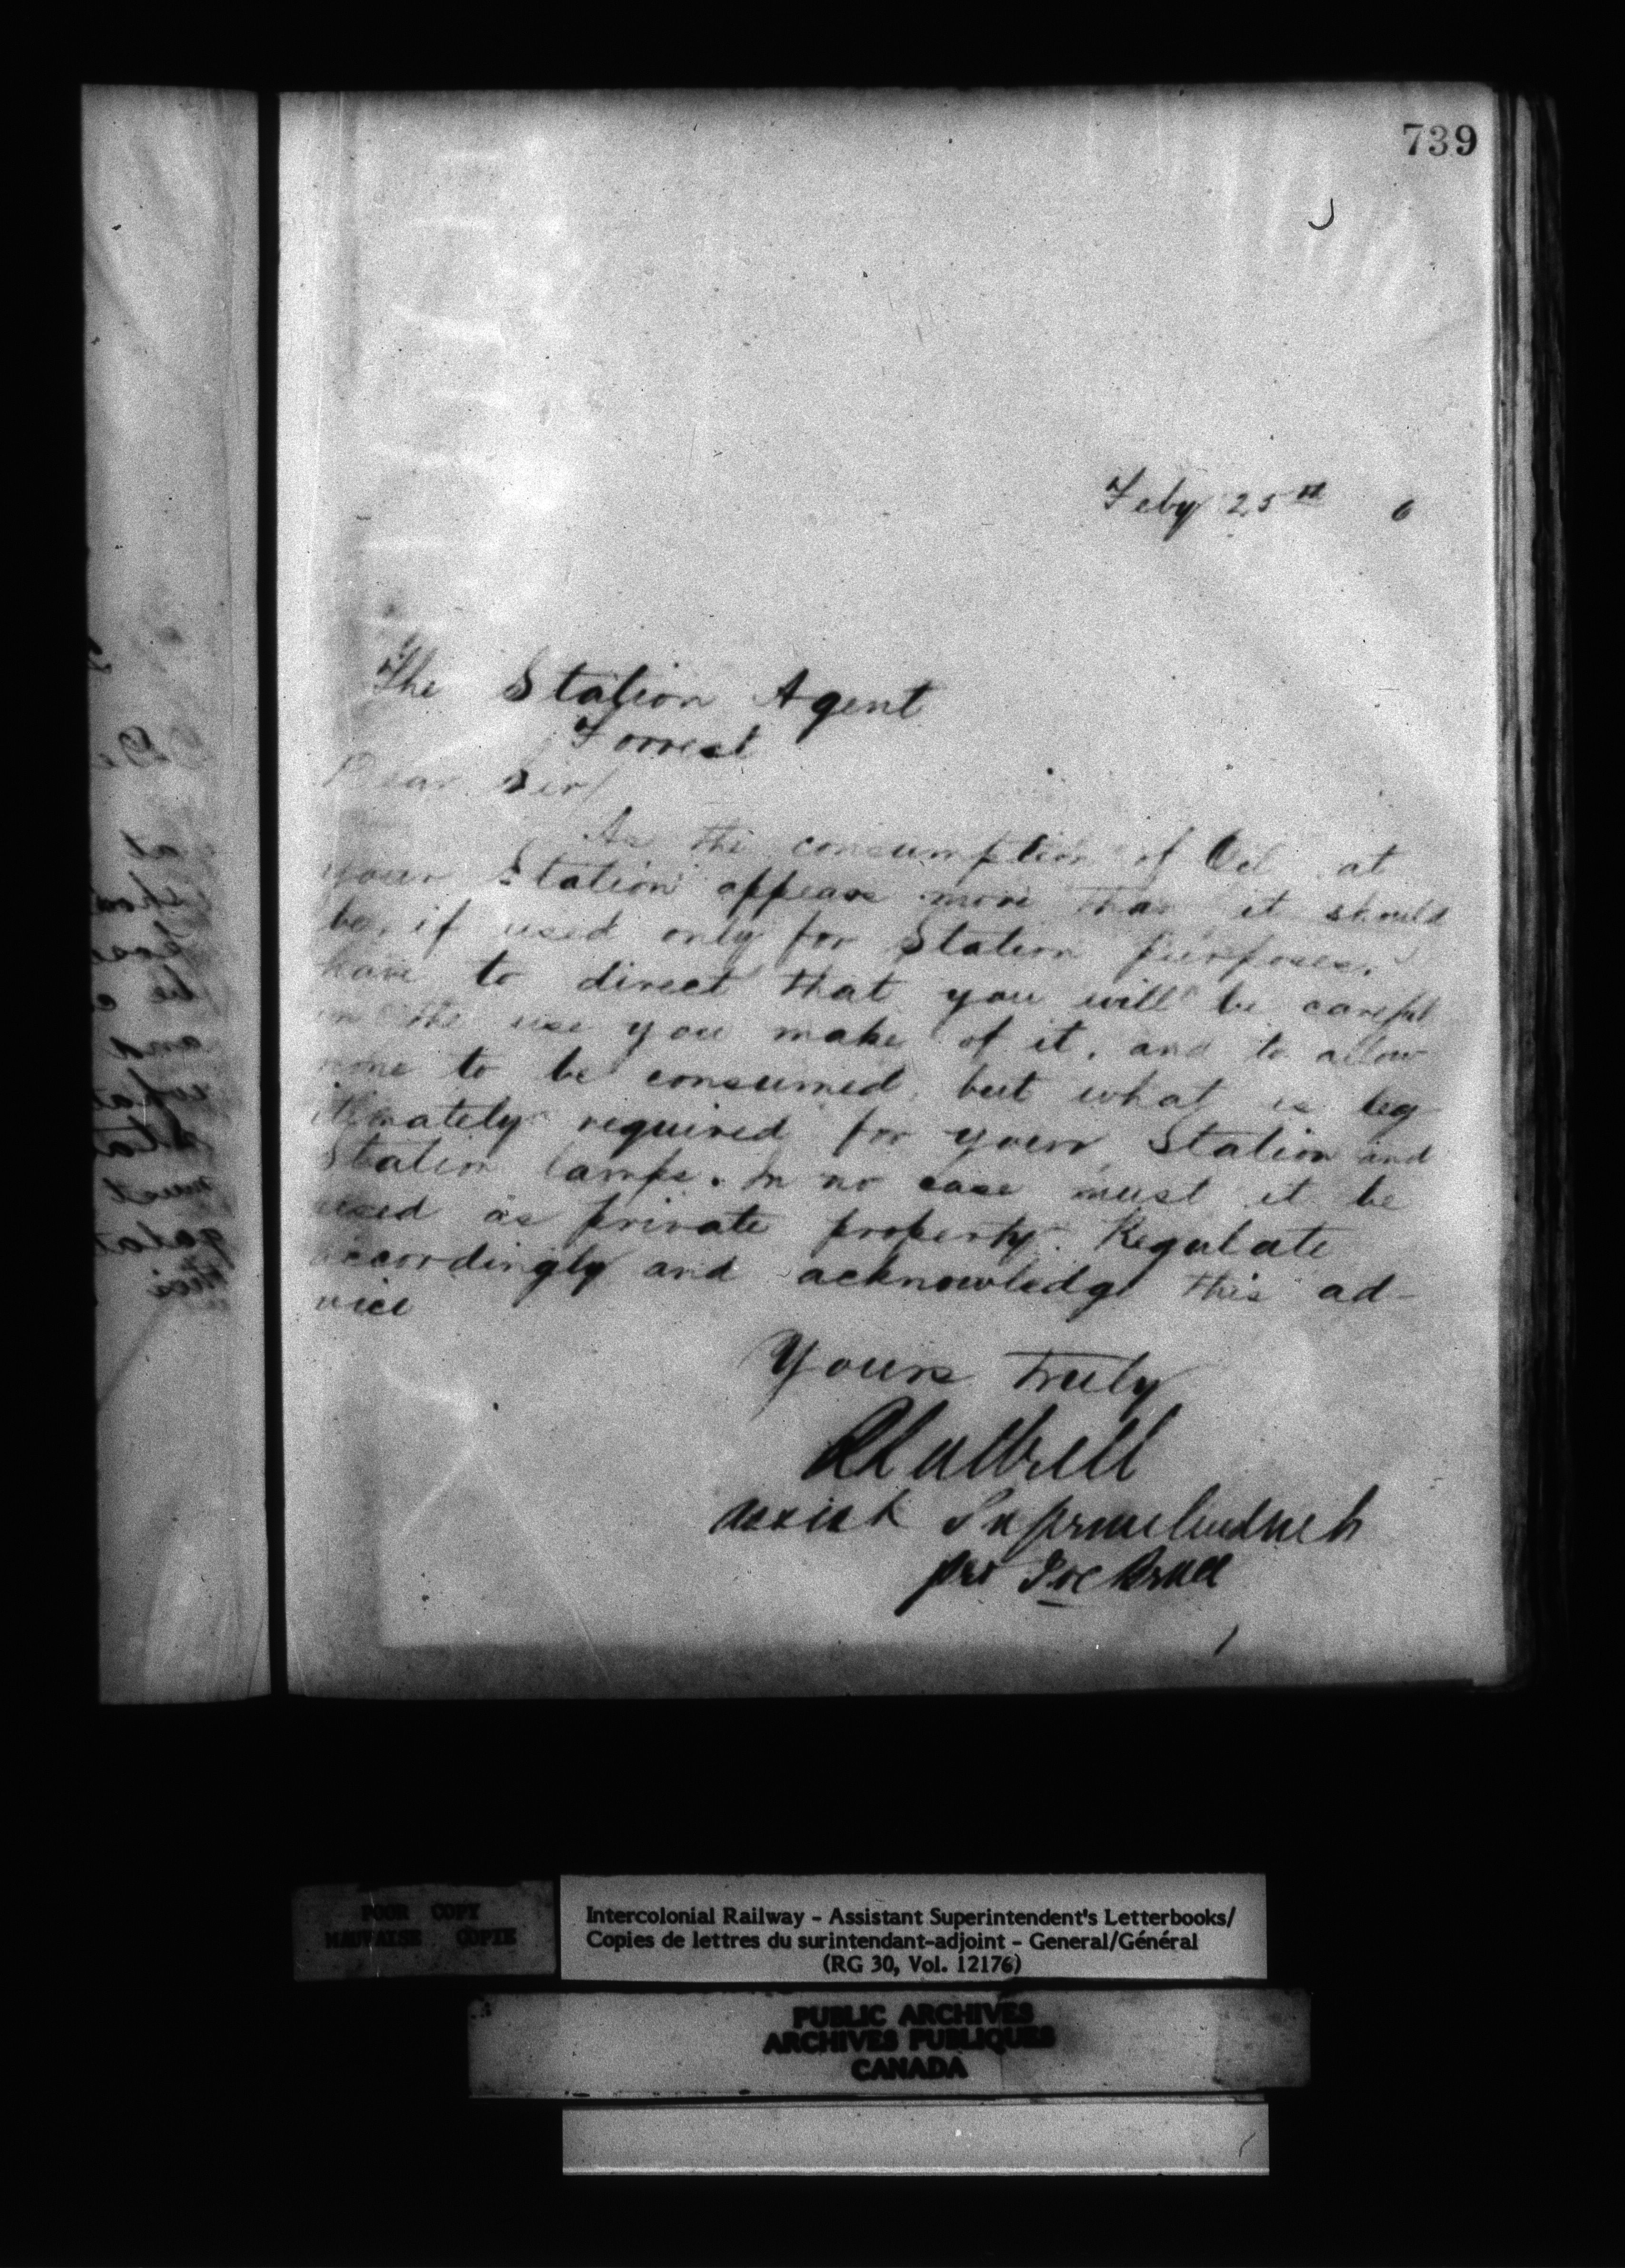 739
Feby 25th 6
The Station Agent
Forrest
Dear Sir/
As the consumption of Oil at
your Station appears more than it should
be, if used only for Station purposes,
have to direct that you will be careful
in the use you make of it, and to allow
none to be consumed, but what is leg
itimately required for your Station and
Station lamps. In no case must it be
used as private property. Regulate
accordingly and acknowledge this ad-
vice
Yours truly
Assist Superintendent
per
POOR COPY
MAUVAISE COPIE
Intercolonial Railway - Assistant Superintendent's Letterbooks/
Copies de lettres du surintendant-adjoint - General/Général
(RG 30, Vol. 12176)
PUBLIC ARCHIVES
ARCHIVES PUBLIQUES
CANADA